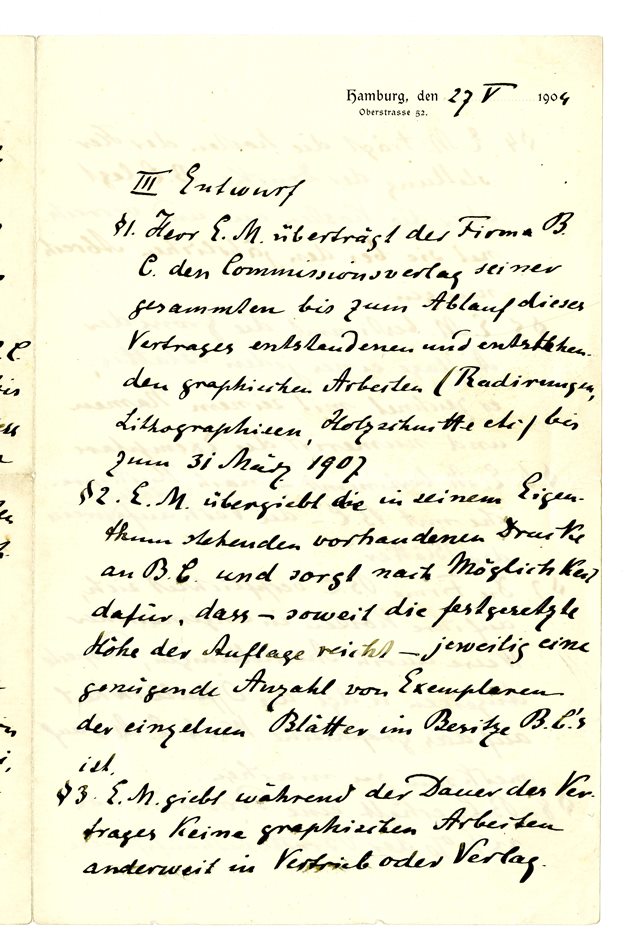 Hamburg, den 27 V 1904
Oberstrasse 52.
III Entwurf
§1. Herr E. M. überträgt der Firma B.
C. den Commissionsverlag seiner
gesammten bis zum Ablauf dieses
Vertrages entstandenen und entstehen-
den graphischen Arbeiten (Radirungen,
Lithographieen, Holzschnitte etc) bis
zum 31 März 1907
§2. E. M. übergiebt die in seinem Eigen-
thum stehenden vorhandenen Drucke
an B. C. und sorgt nach Möglichkeit
dafür, dass – soweit die festgesetzte
Höhe der Auflage reicht – jeweilig eine
genügende Anzahl von Exemplaren
der einzelnen Blätter im Besitze B.C.'s
ist.
§3. E. M. giebt während der Dauer des Ver-
trages keine graphischen Arbeiten
anderweit in Vertrieb oder Verlag.